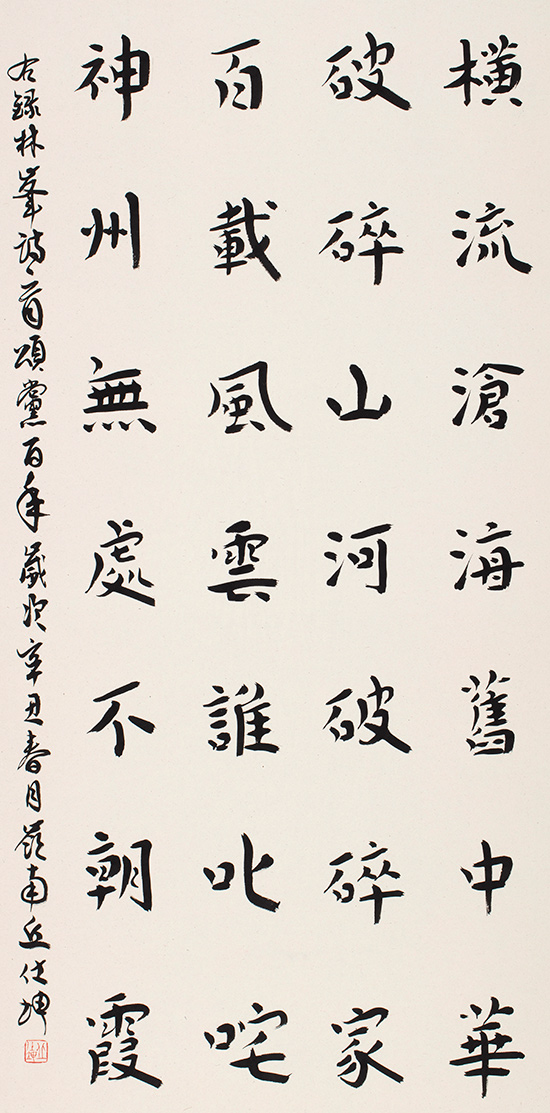 橫流滄海舊中華
破碎山河破碎家
百載風雲誰叱咤
神州無處不朝霞
右錄林峯詩一首頌黨百年歲次辛丑春月嶺南丘仕坤